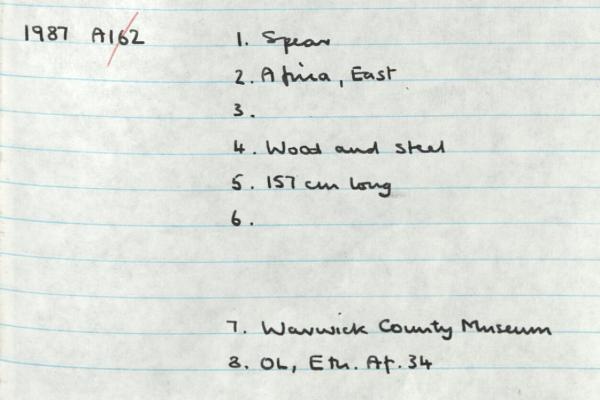 1987 A162 1. Spear
2. Africa, East
3.
4. Wood and steel
5. 157 cm long
6.
7. Warwick County Museum
8. OL, Eth. Af. 34